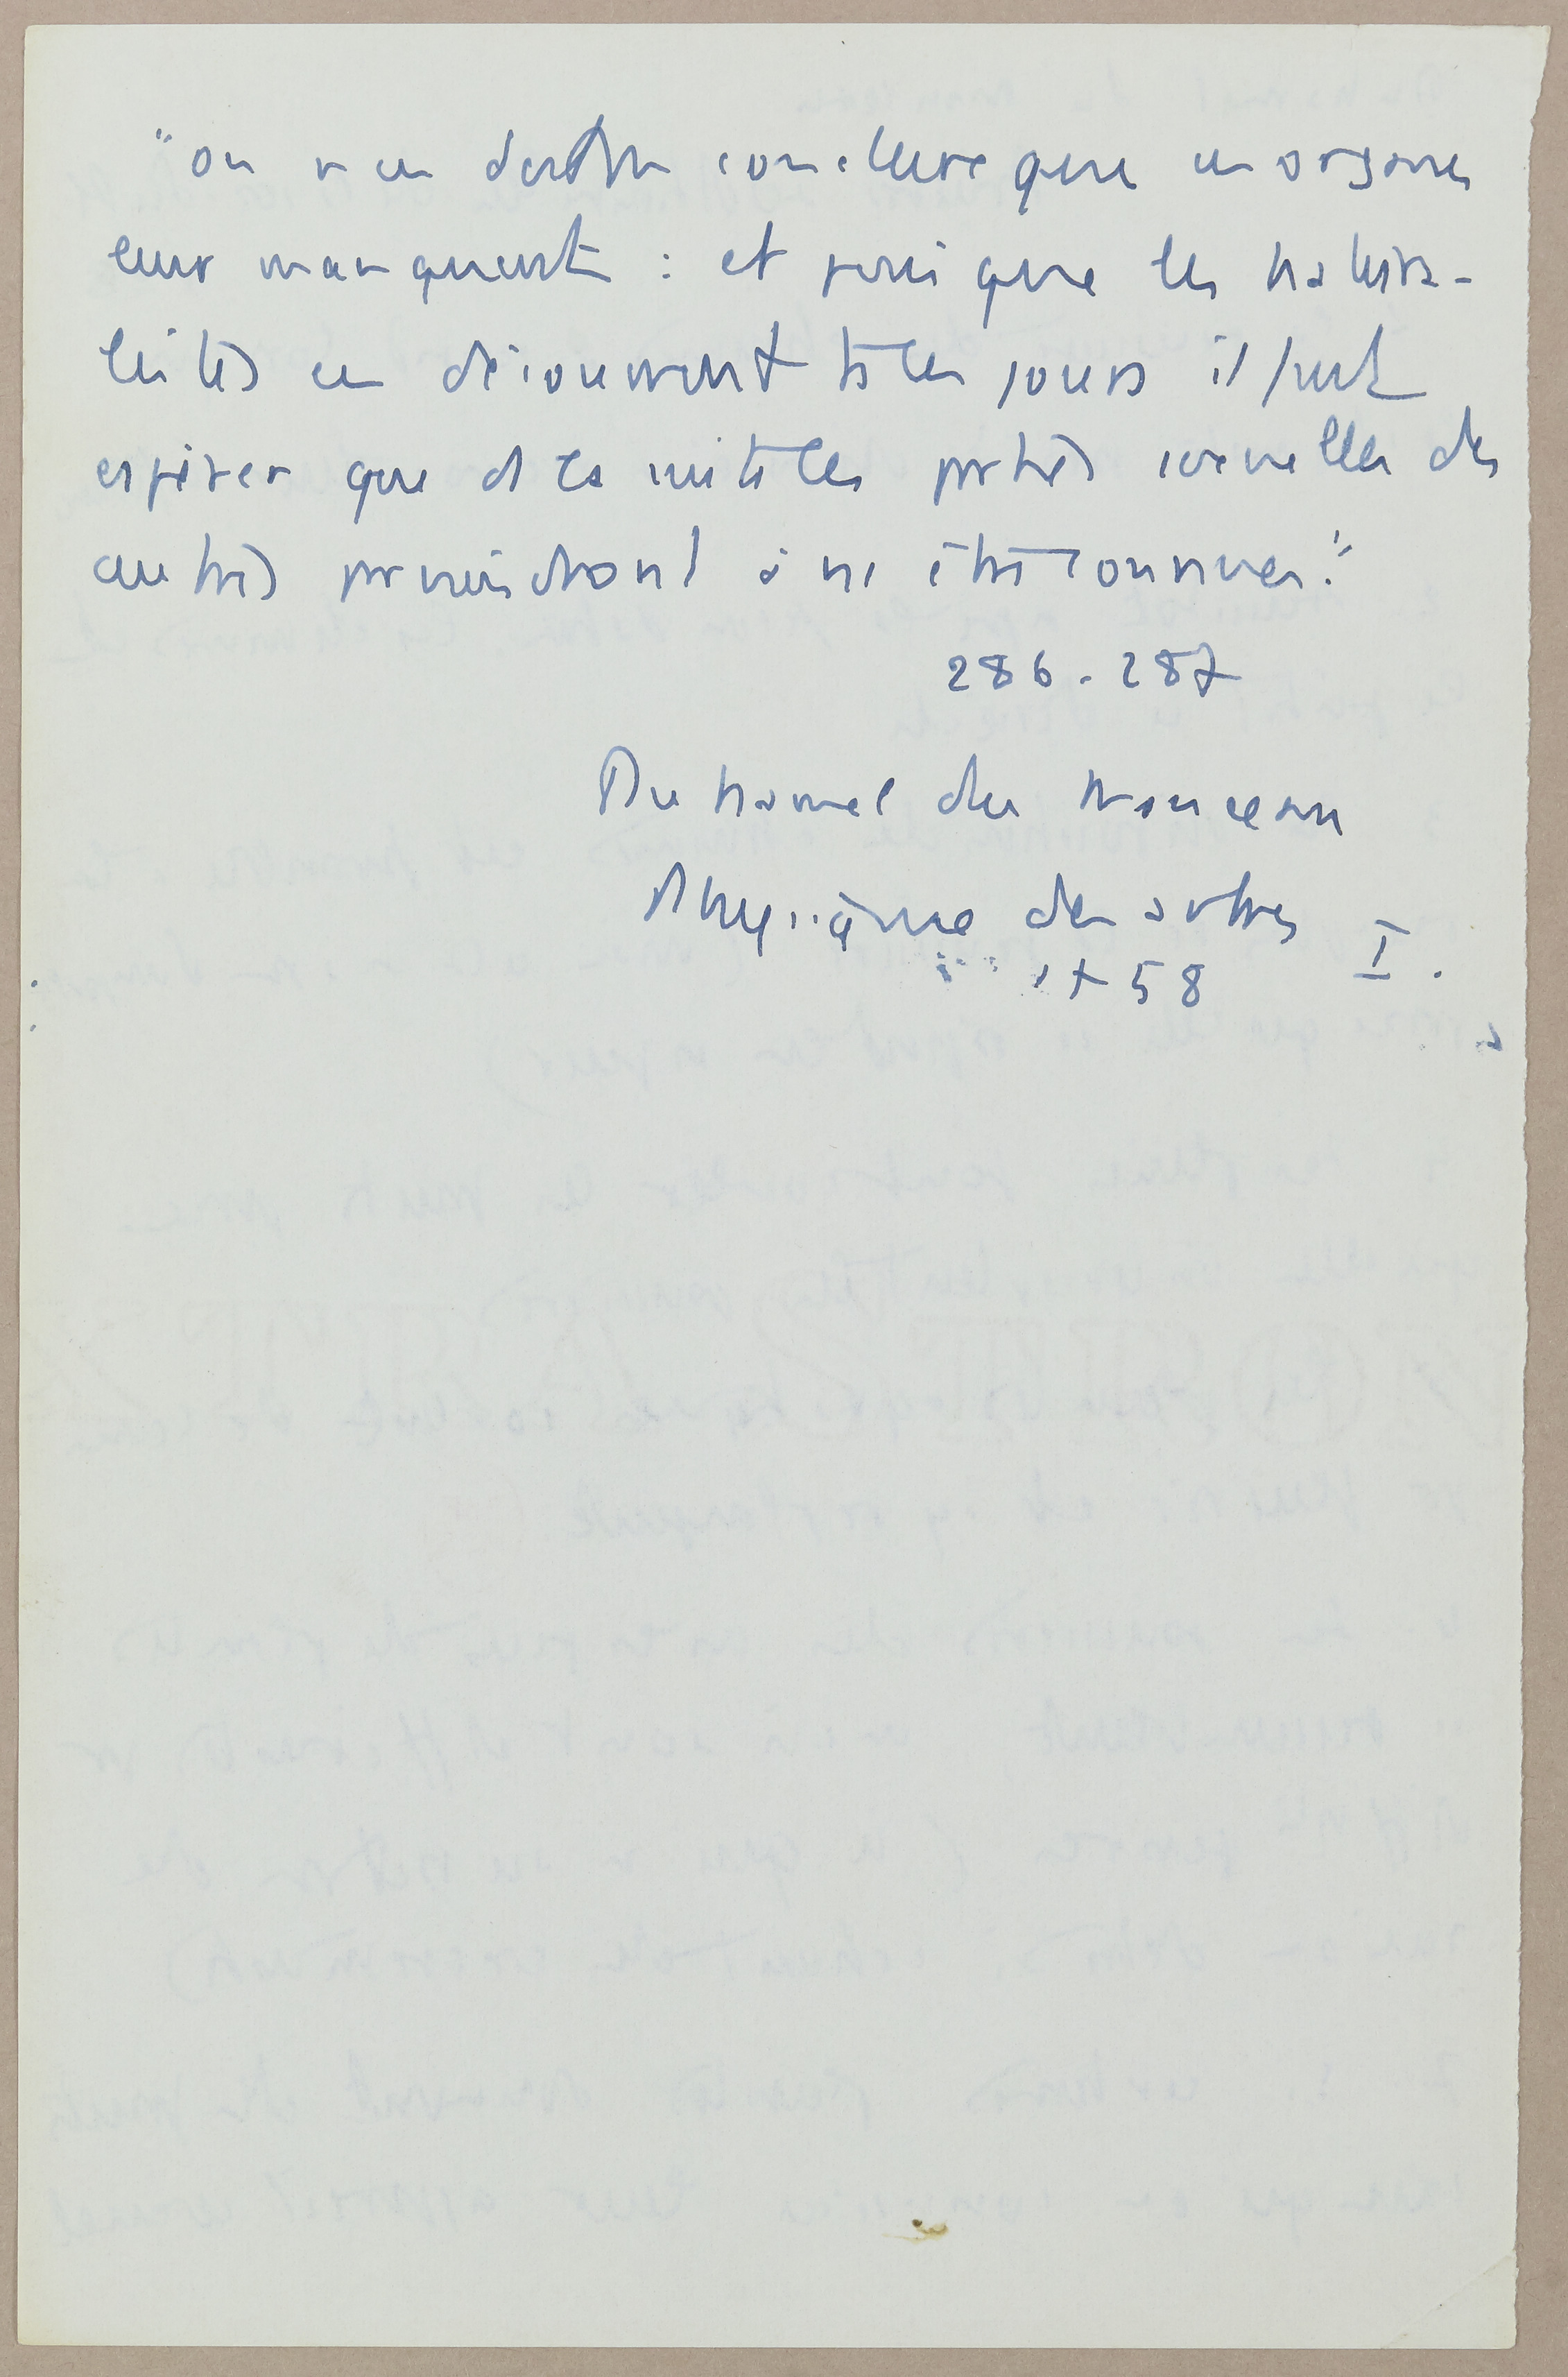 "on n'en doit pas conclure que ces organes
leur manquent : et puisque les natura-
listes en découvrent ts les jours il faut
espérer que ds la suite les parties sexuelles des
autres parviendront à ns être connues."
286-287
Duhamel du Monceau
Physique des arbres I.
1758